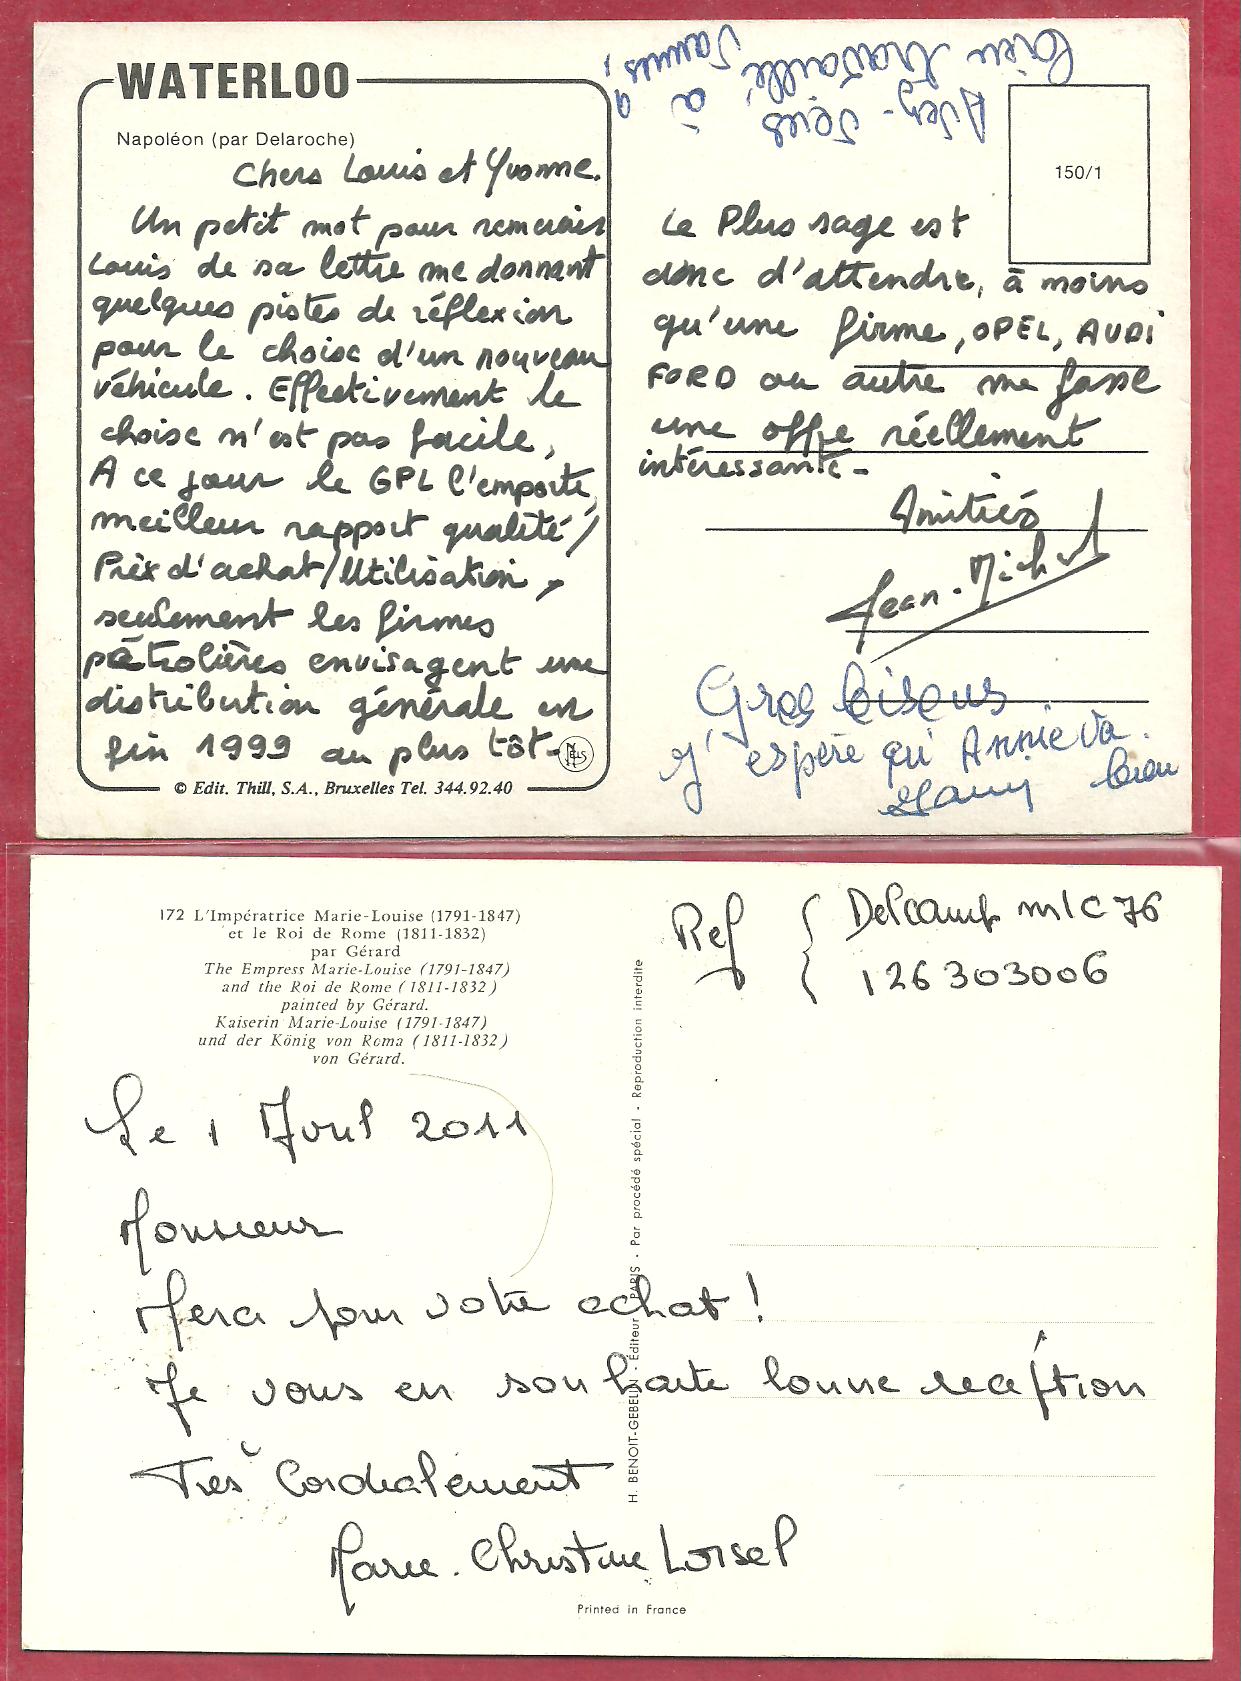 WATERLOO
Napoléon (par Delaroche)
Chers Louis et Yvonne.
Un petit mot pour remercier
Louis de sa lettre me donnant
quelques pistes de réflexion
pour le choisc d'un nouveau
véhicule. Effectivement le
choisc n'est pas facile,
A ce jour le GPL l'emporte,
meilleur rapport qualité/
Prix d'achat/Utilisation,
seulement les firmes
pétrolières envisagent une
distribution générale en
fin 1999 au plus tôt-
NELS
© Edit. Thill, S.A., Bruxelles Tel. 344.92.40
150/1
Le Plus sage est
donc d'attendre, à moins
qu'une firme, OPEL, AUDI
FORD ou autre me fasse
une offre réellement
intéressante-
Amitiés
Jean-Michel
Gros bisous
J'espère qu'Annie va
bien
à
bien travaillé
172 L'Impératrice Marie-Louise (1791-1847)
et le Roi de Rome (1811-1832)
par Gérard
The Empress Marie-Louise (1791-1847)
and the Roi de Rome (1811-1832)
painted by Gérard.
Kaiserin Marie-Louise (1791-1847)
und der König von Roma (1811-1832)
von Gérard.
Ref { Delcamp mlc76
126303006
Le 1 Avril 2011
Monsieur
Merci pour votre achat!
Je vous en souhaite bonne réception
Très Cordialement
Marie-Christine Loisel
H. BENOIT-GEBELIN - Éditeur - PARIS - Par procédé spécial - Reproduction interdite
Printed in France